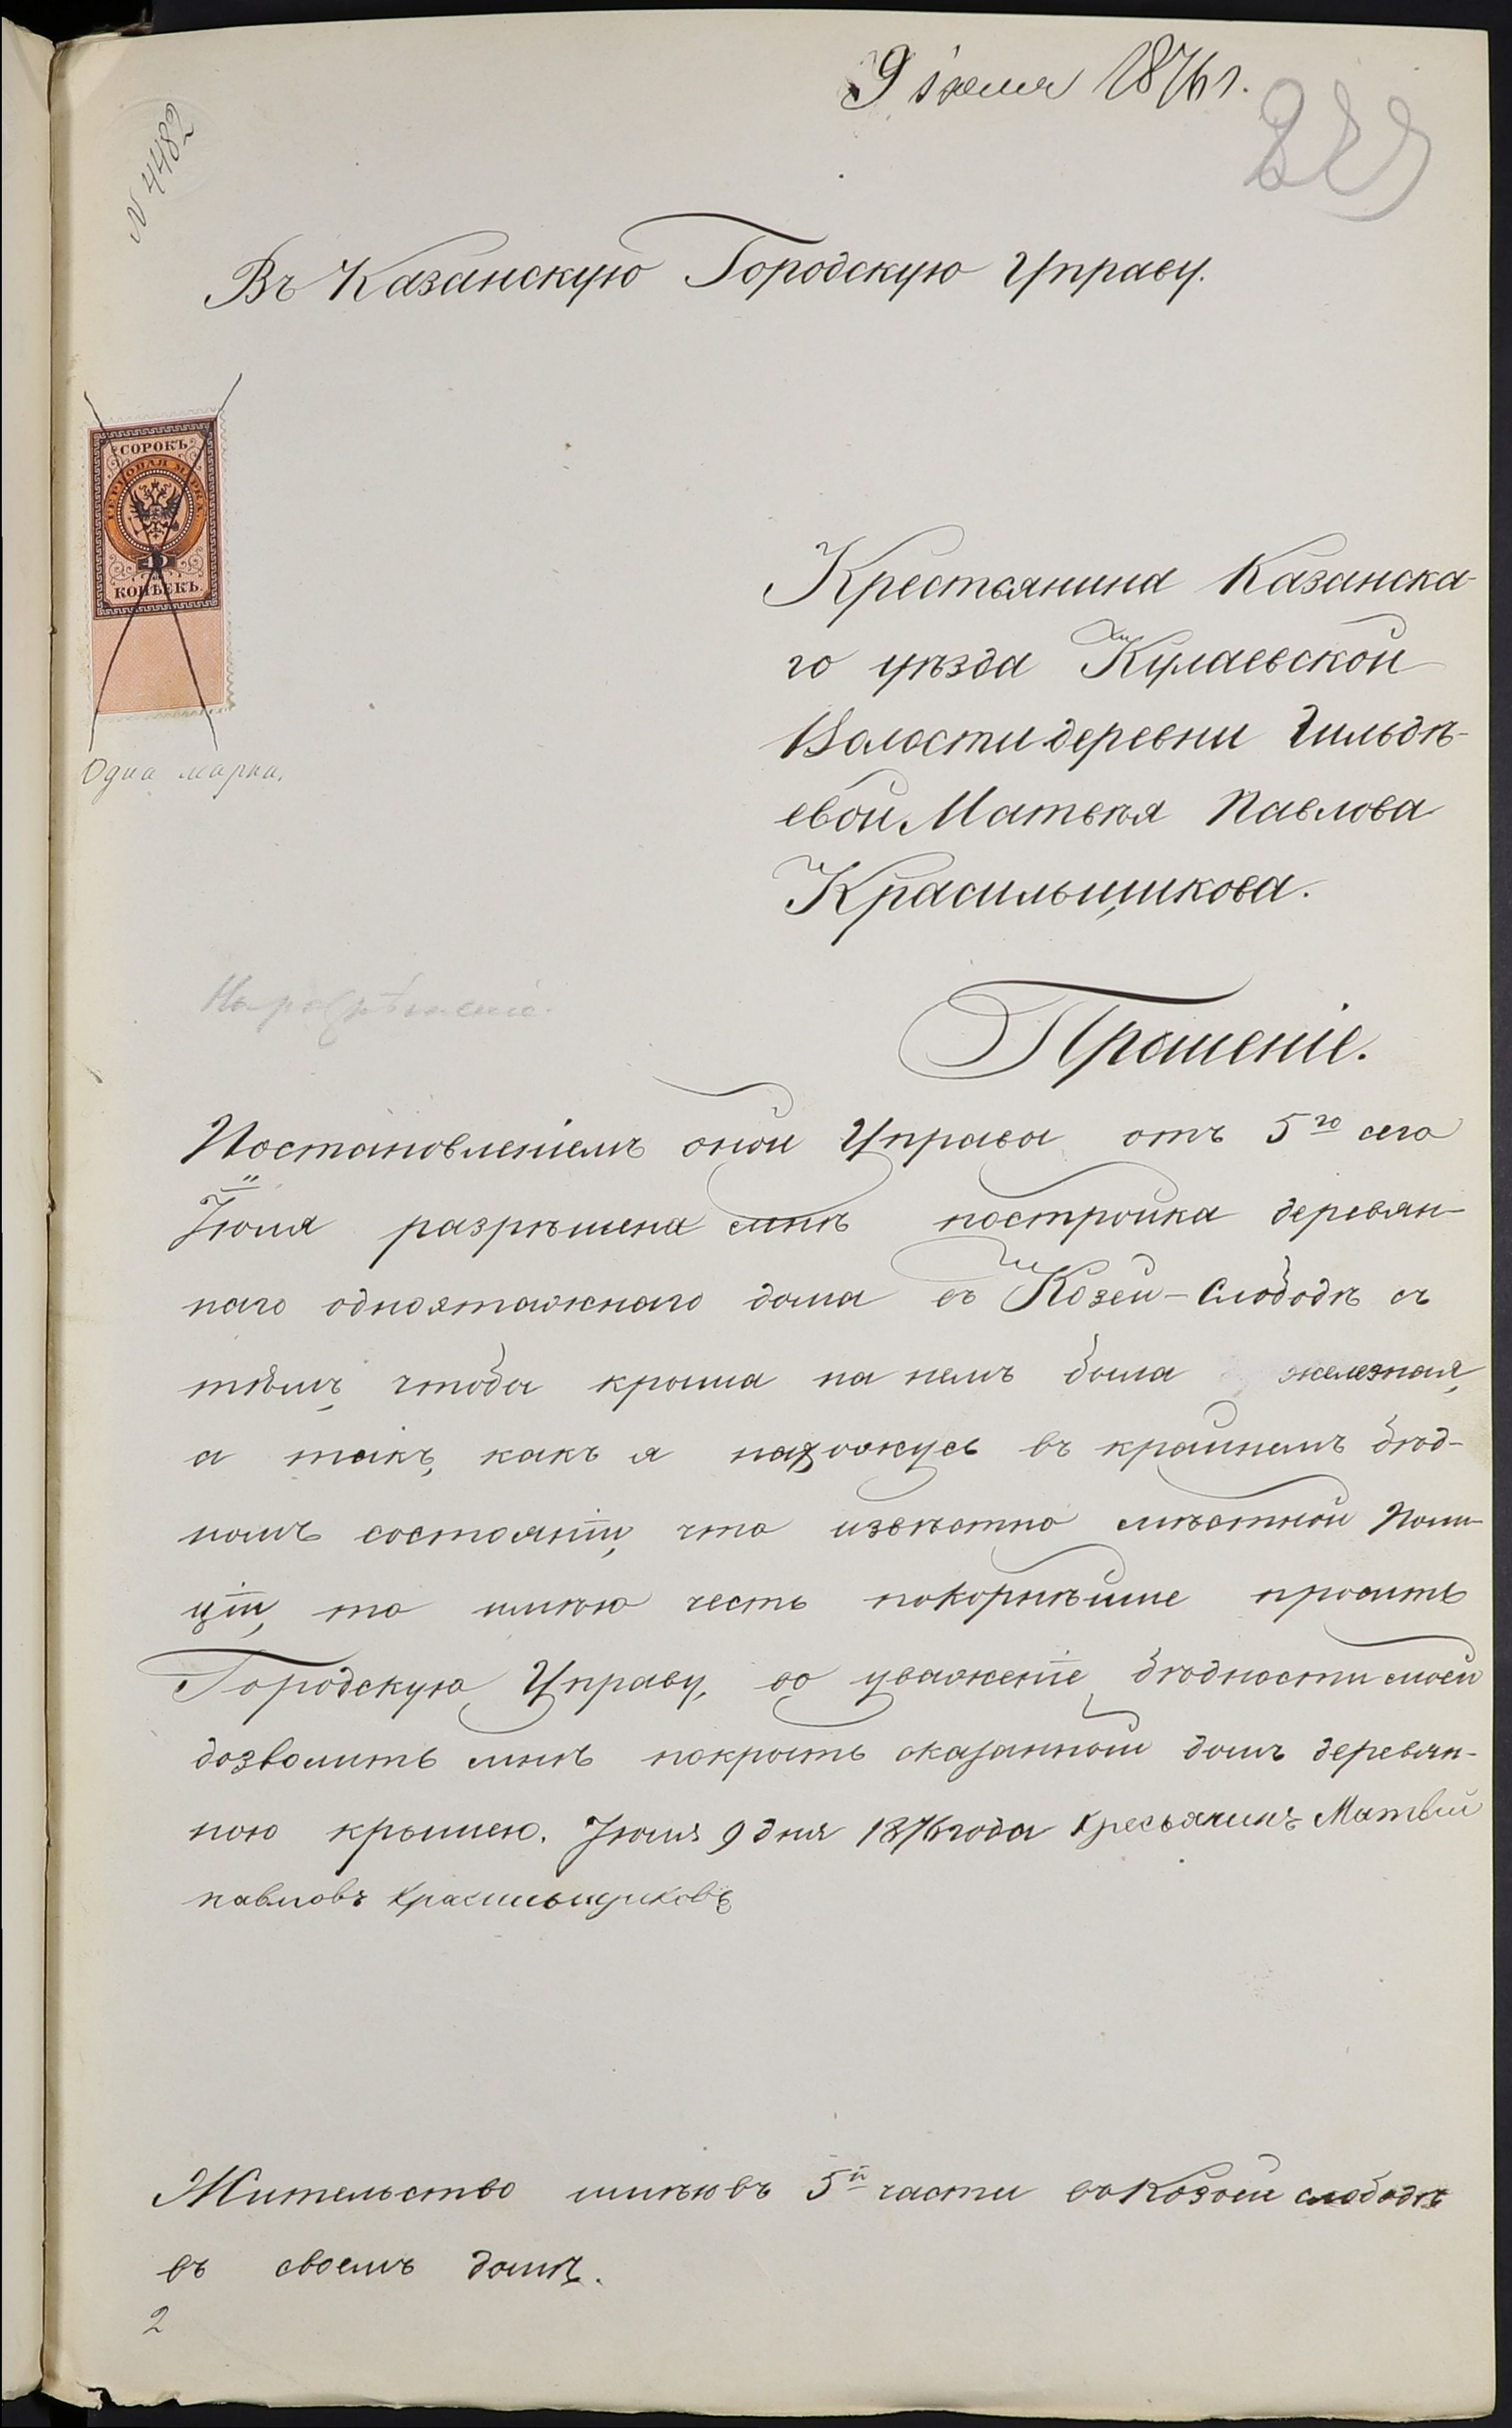 9 іюля 1876 г.
N 4482
Въ Казанскую Городскую Управу.
СОРОКЪ
ГЕРБОВАЯ МАРКА
40
КОПѢЕКЪ.
Одна марка.
Крестьянина Казанска-
го уѣзда Кулаевской
Волости деревни Гильдѣ-
евой Матвѣя Павлова
Красильщикова.
Прошеніе.
Постановленіемъ оной Управы отъ 5го сего
Іюля разрѣшена мнѣ постройка деревян-
наго одноэтажнаго дома въ Козей-Слободѣ съ
тѣмъ, чтобы крыша на немъ была железная,
а такъ, какъ я нахожусь въ крайнемъ бѣд-
номъ состояніи, что извѣстно мѣстной Поли-
ціи, то имѣю честь покорнѣйше просить
Городскую Управу, во уваженіе бѣдности моей
дозволить мнѣ покрыть сказанный домъ деревян-
ною крышею. Іюля 9 дня 1876 года Кресьянинъ Матвѣй
павловъ Красильщиковъ
Жительство имѣю въ 5й части во Козьей слободѣ
въ своемъ домѣ.
2